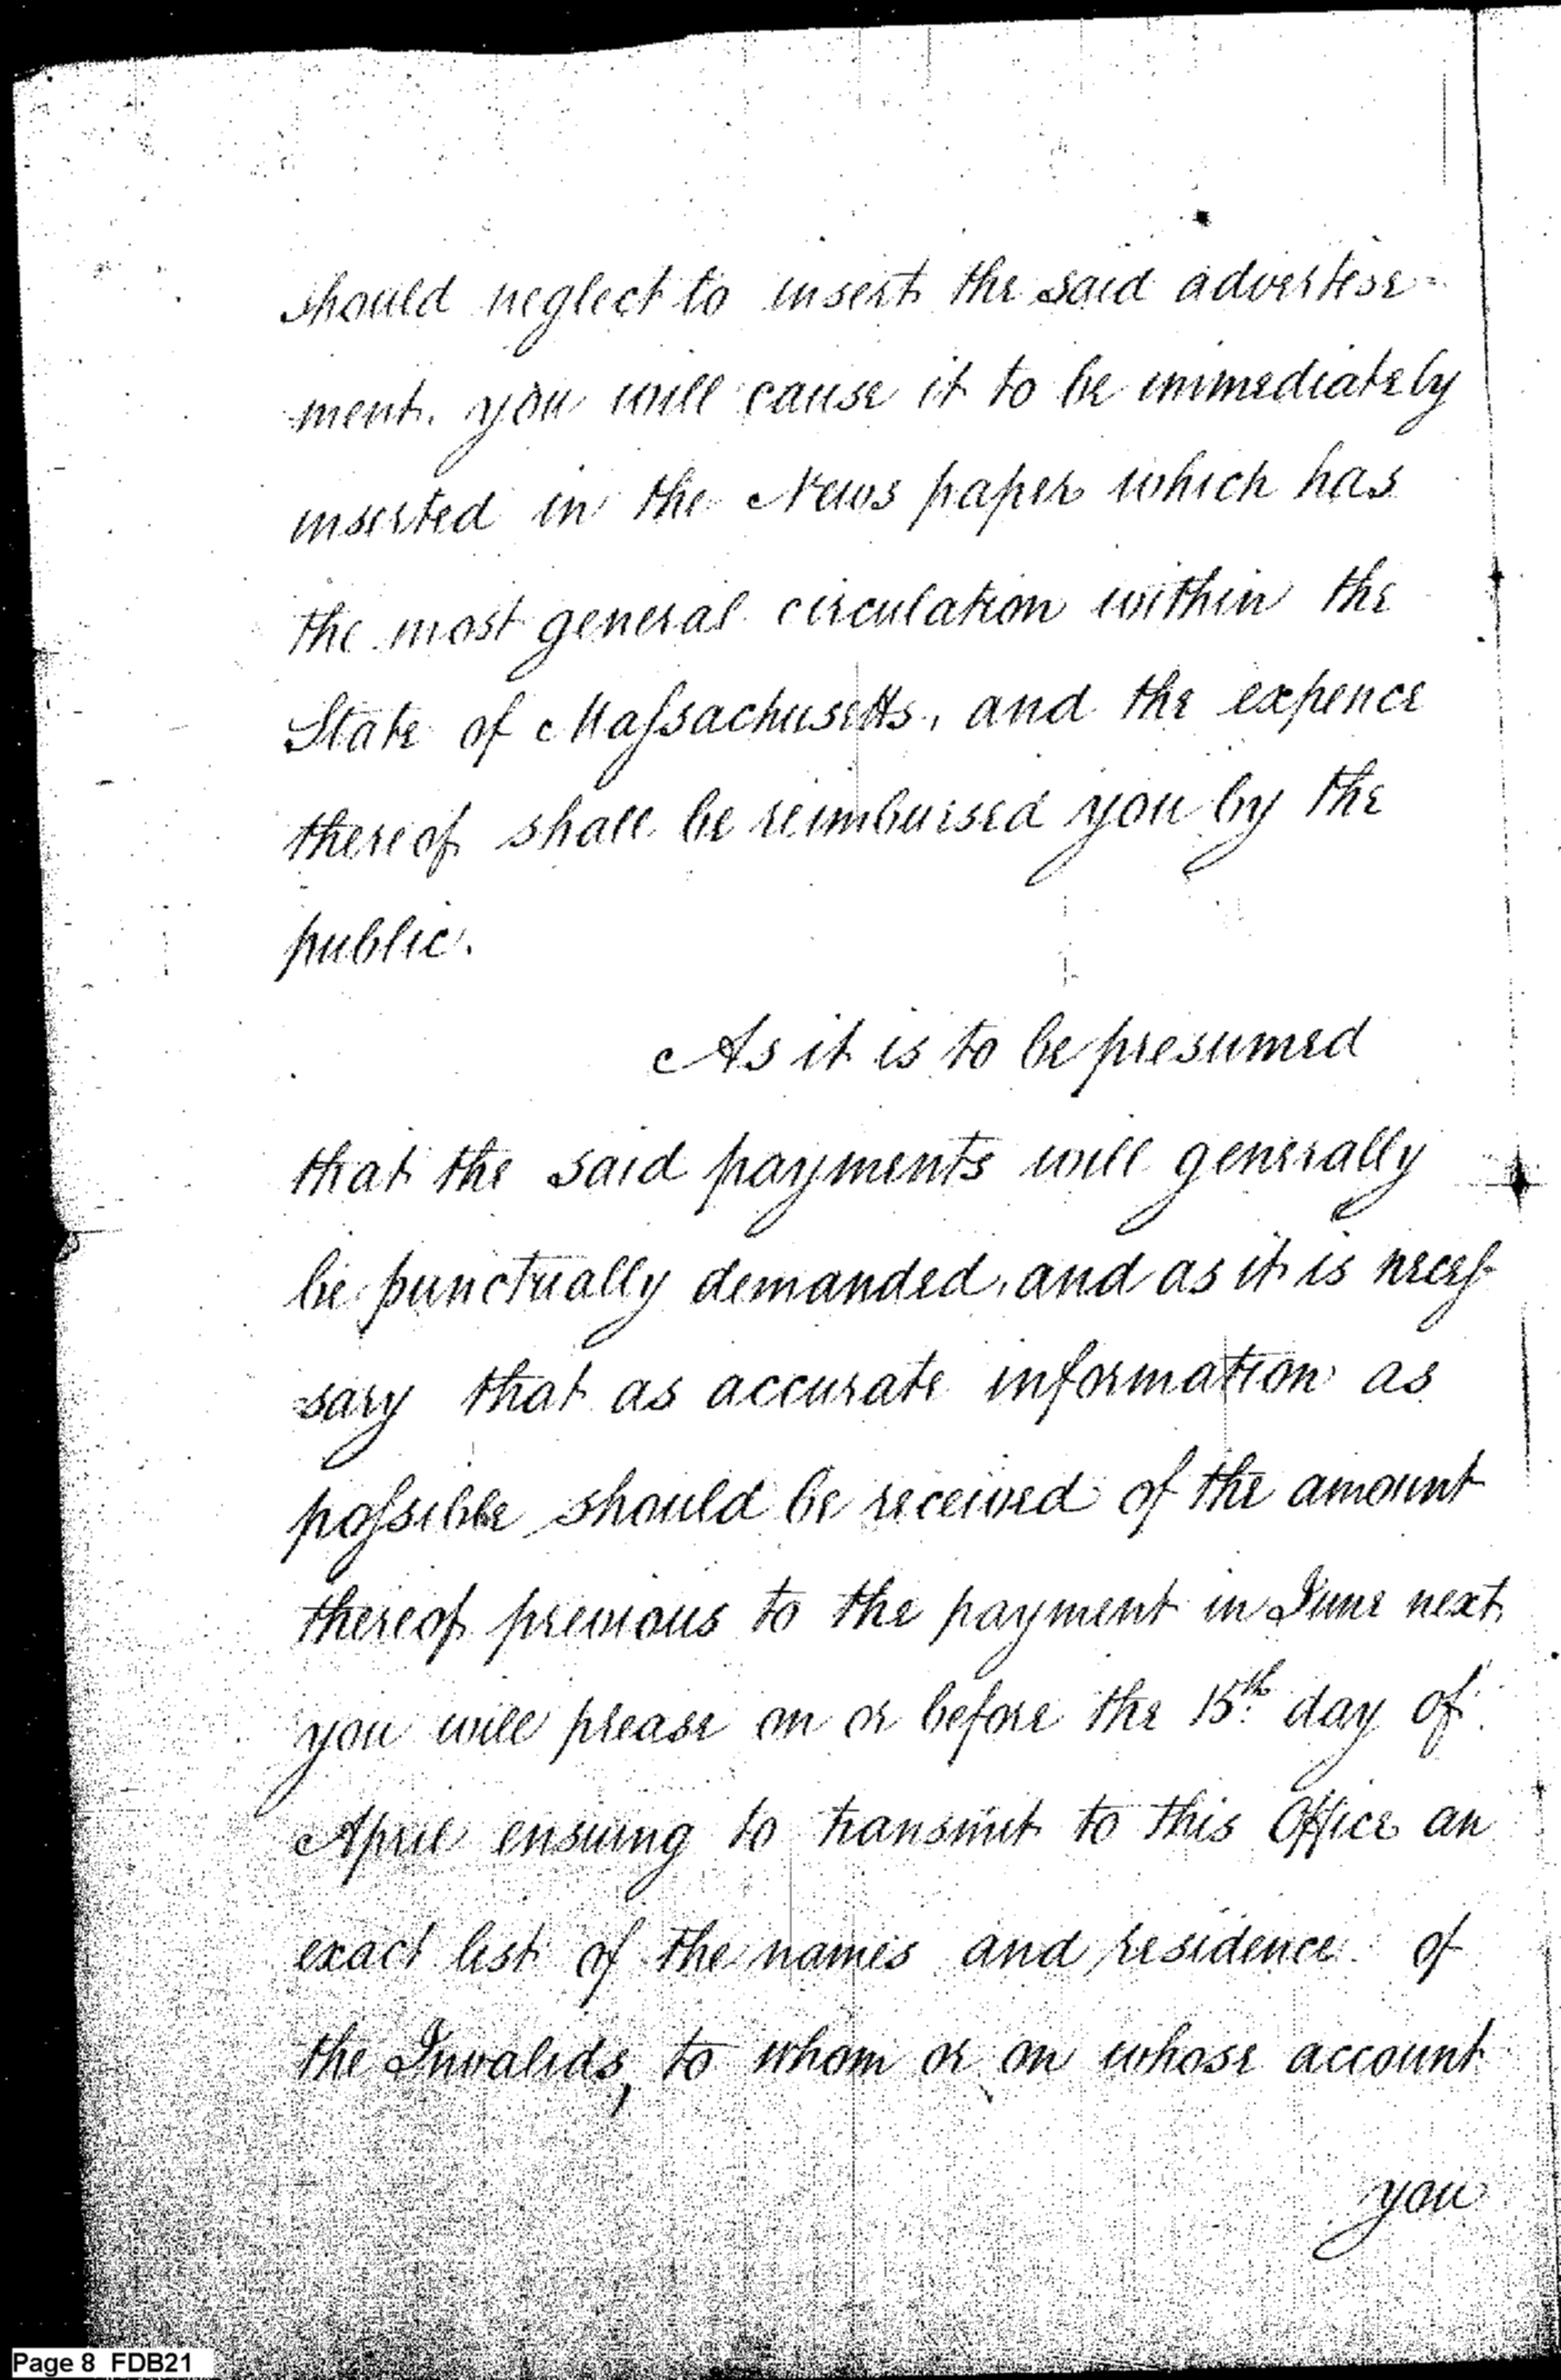 should neglect to insert the said advertise=
ment. you will cause it to be immediately
inserted in the News paper which has
the most general circulation within the
State of Maſsachusetts, and the expence
thereof shall be reimbursed you by the
public.
As it is to be presumed
that the said payments will generally
be punctually demanded, and as it is neceſ-
=sary that as accurate information as
poſsible should be received of the amount
thereof previous to the payment in June next,
you will please on or before the 15th day of
April ensuing to transmit to this Office an
exact list of the names and residence of
the Invalids, to whom or on whose account
you
Page 8 FDB21